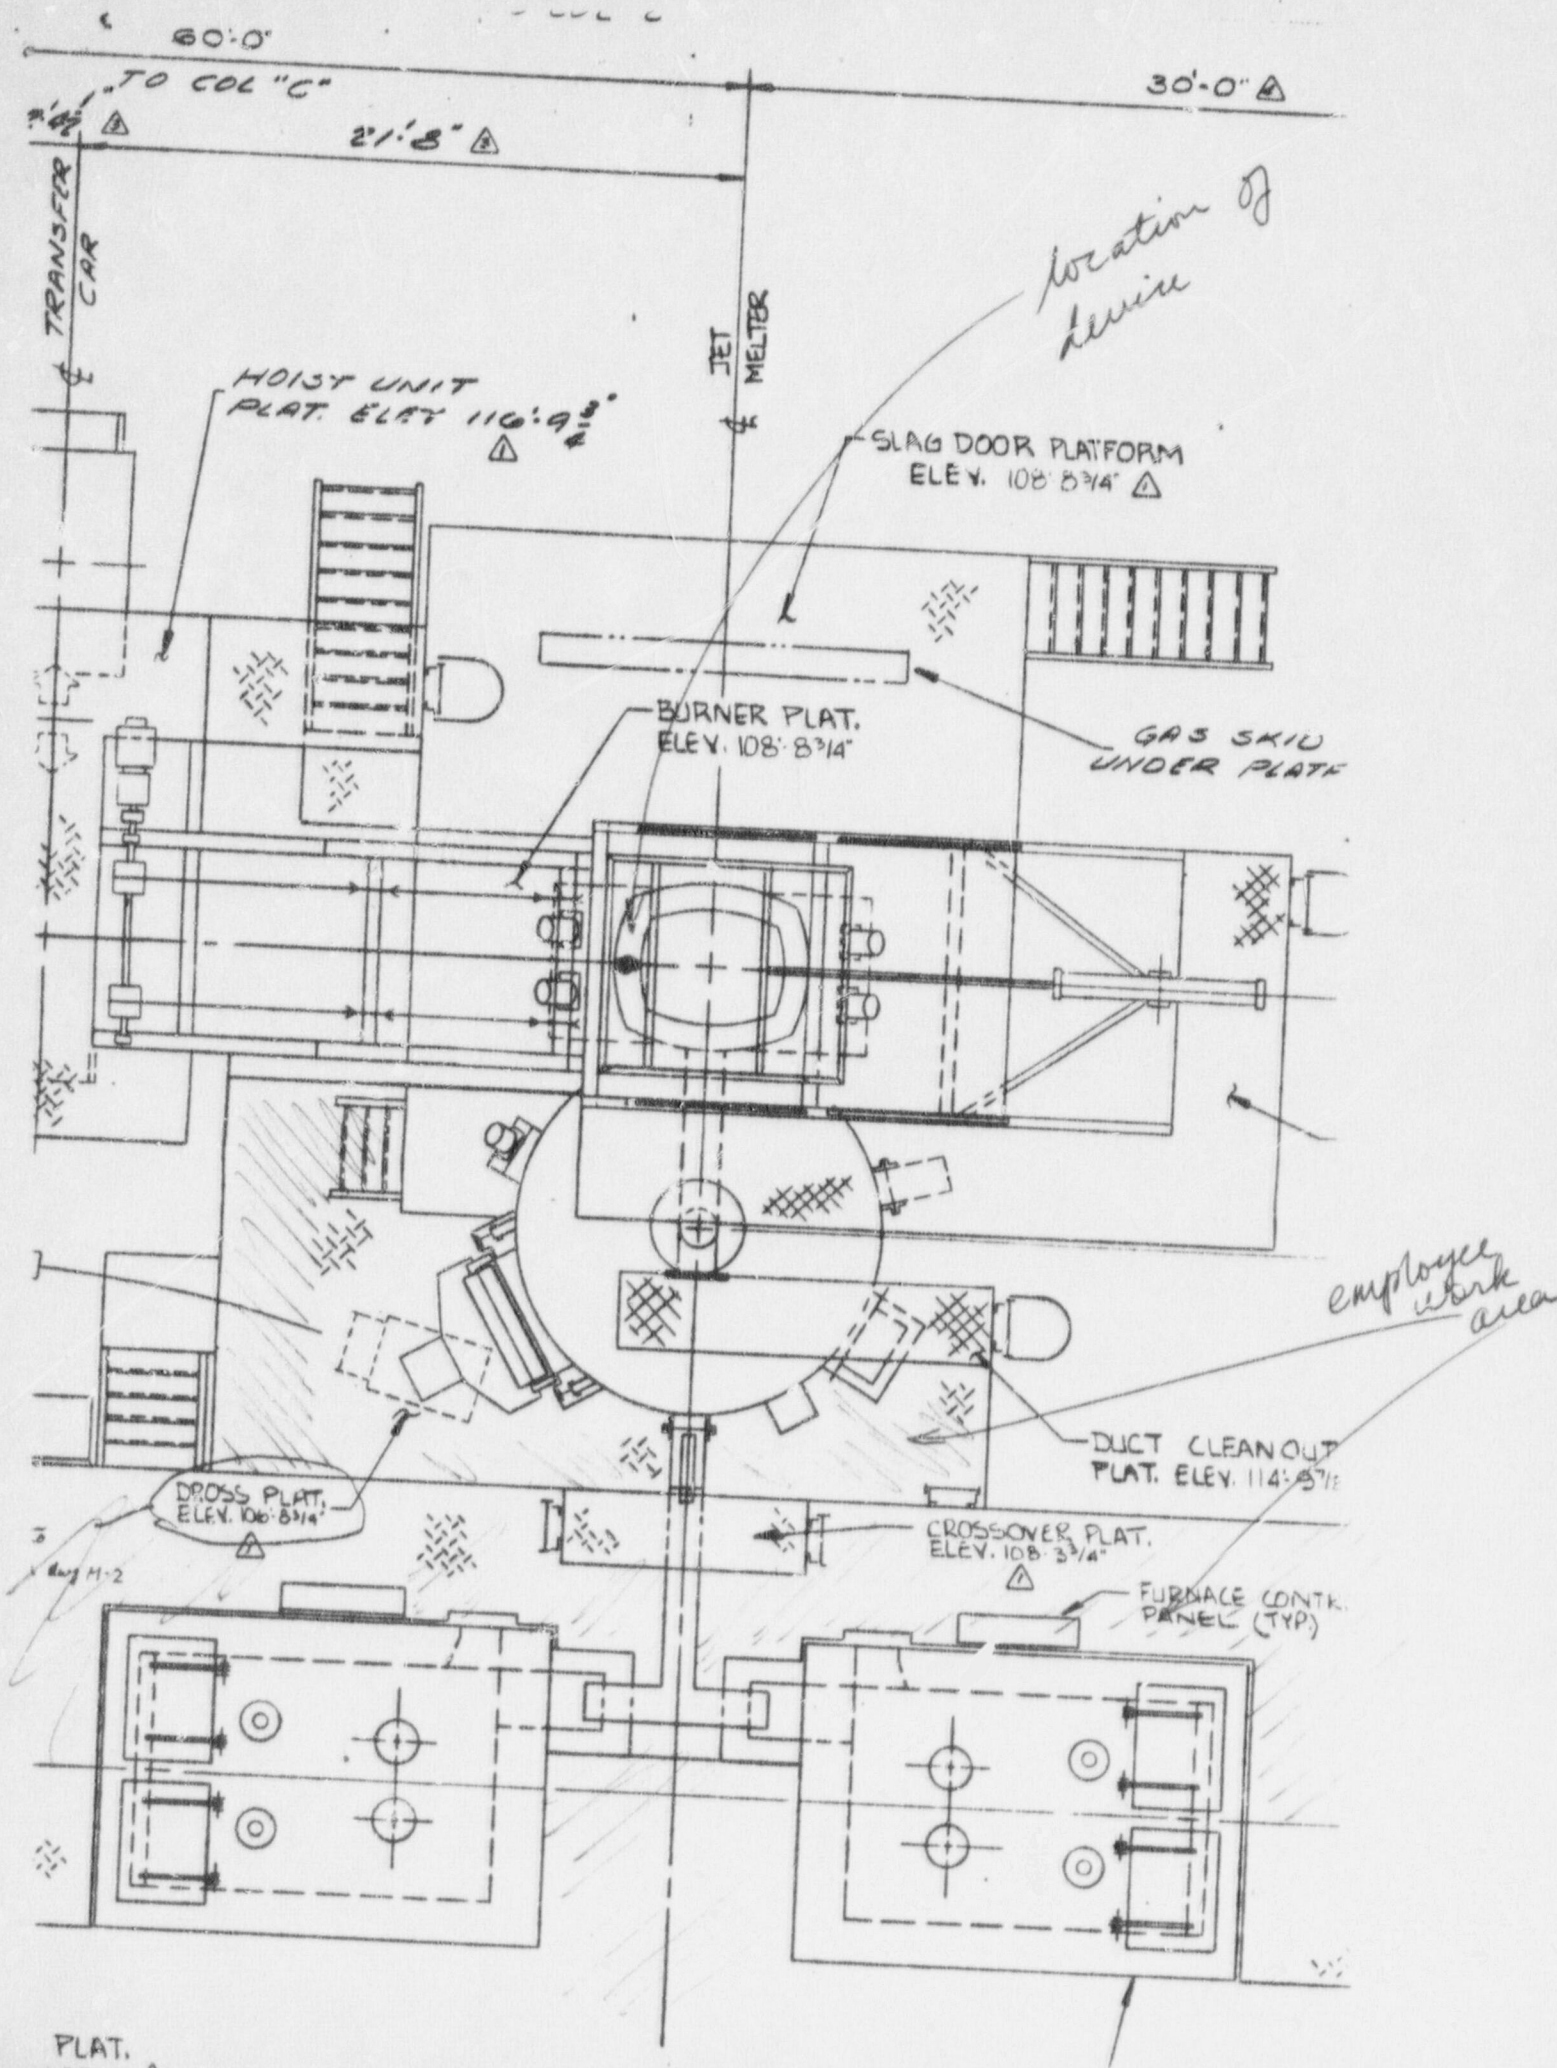 60'-0"
TO COL "C"
30'-0" 4
21'-8"
TRANSFER
CAR
JET
MELTER
location of
device
HOIST UNIT
PLAT. ELEV 116'-9 3/4"
1
SLAG DOOR PLATFORM
ELEV. 108'-8 3/4" 1
BURNER PLAT.
ELEV. 108'-8 3/4"
GAS SKID
UNDER PLATF
employee
work
area
DUCT CLEANOUT
PLAT. ELEV. 114'-9 7/8
DROSS PLAT.
ELEV. 106'-8 3/4"
1
CROSSOVER PLAT.
ELEV. 108'-3 3/4"
1
dwg M-2
FURNACE CONTR.
PANEL (TYP.)
PLAT.